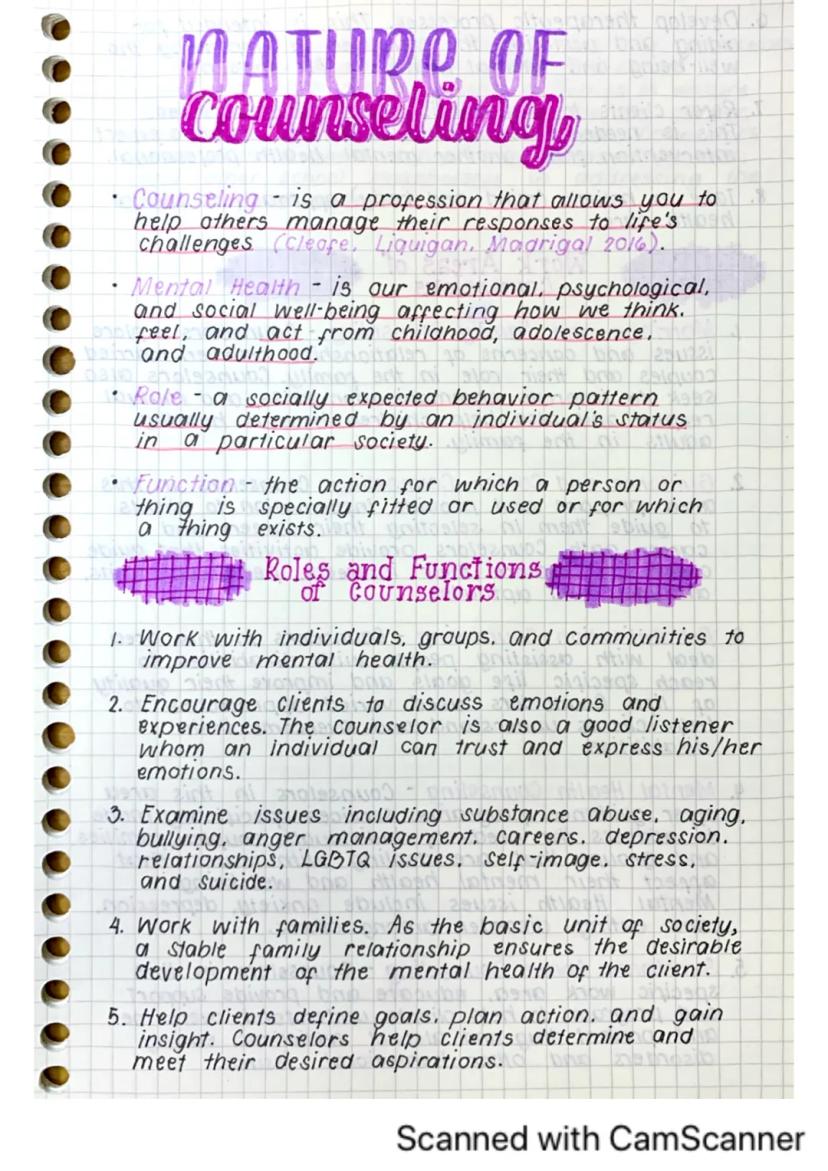 NATURE OF
counseling
• Counseling - is a profession that allows you to
help others manage their responses to life's
challenges (Cleofe, Liquigan, Madrigal 2016).
• Mental Health - is our emotional, psychological,
and social well-being affecting how we think,
feel, and act from childhood, adolescence,
and adulthood.
• Role - a socially expected behavior pattern
usually determined by an individual's status
in a particular society.
• Function - the action for which a person or
thing is specially fitted or used or for which
a thing exists.
Roles and Functions
of Counselors
1. Work with individuals, groups, and communities to
improve mental health.
2. Encourage clients to discuss emotions and
experiences. The counselor is also a good listener
whom an individual can trust and express his/her
emotions.
3. Examine issues including substance abuse, aging,
bullying, anger management, careers, depression,
relationships, LGBTQ issues, self-image, stress,
and suicide.
4. Work with families. As the basic unit of society,
a stable family relationship ensures the desirable
development of the mental health of the client.
5. Help clients define goals, plan action, and gain
insight. Counselors help clients determine and
meet their desired aspirations.
Scanned with CamScanner